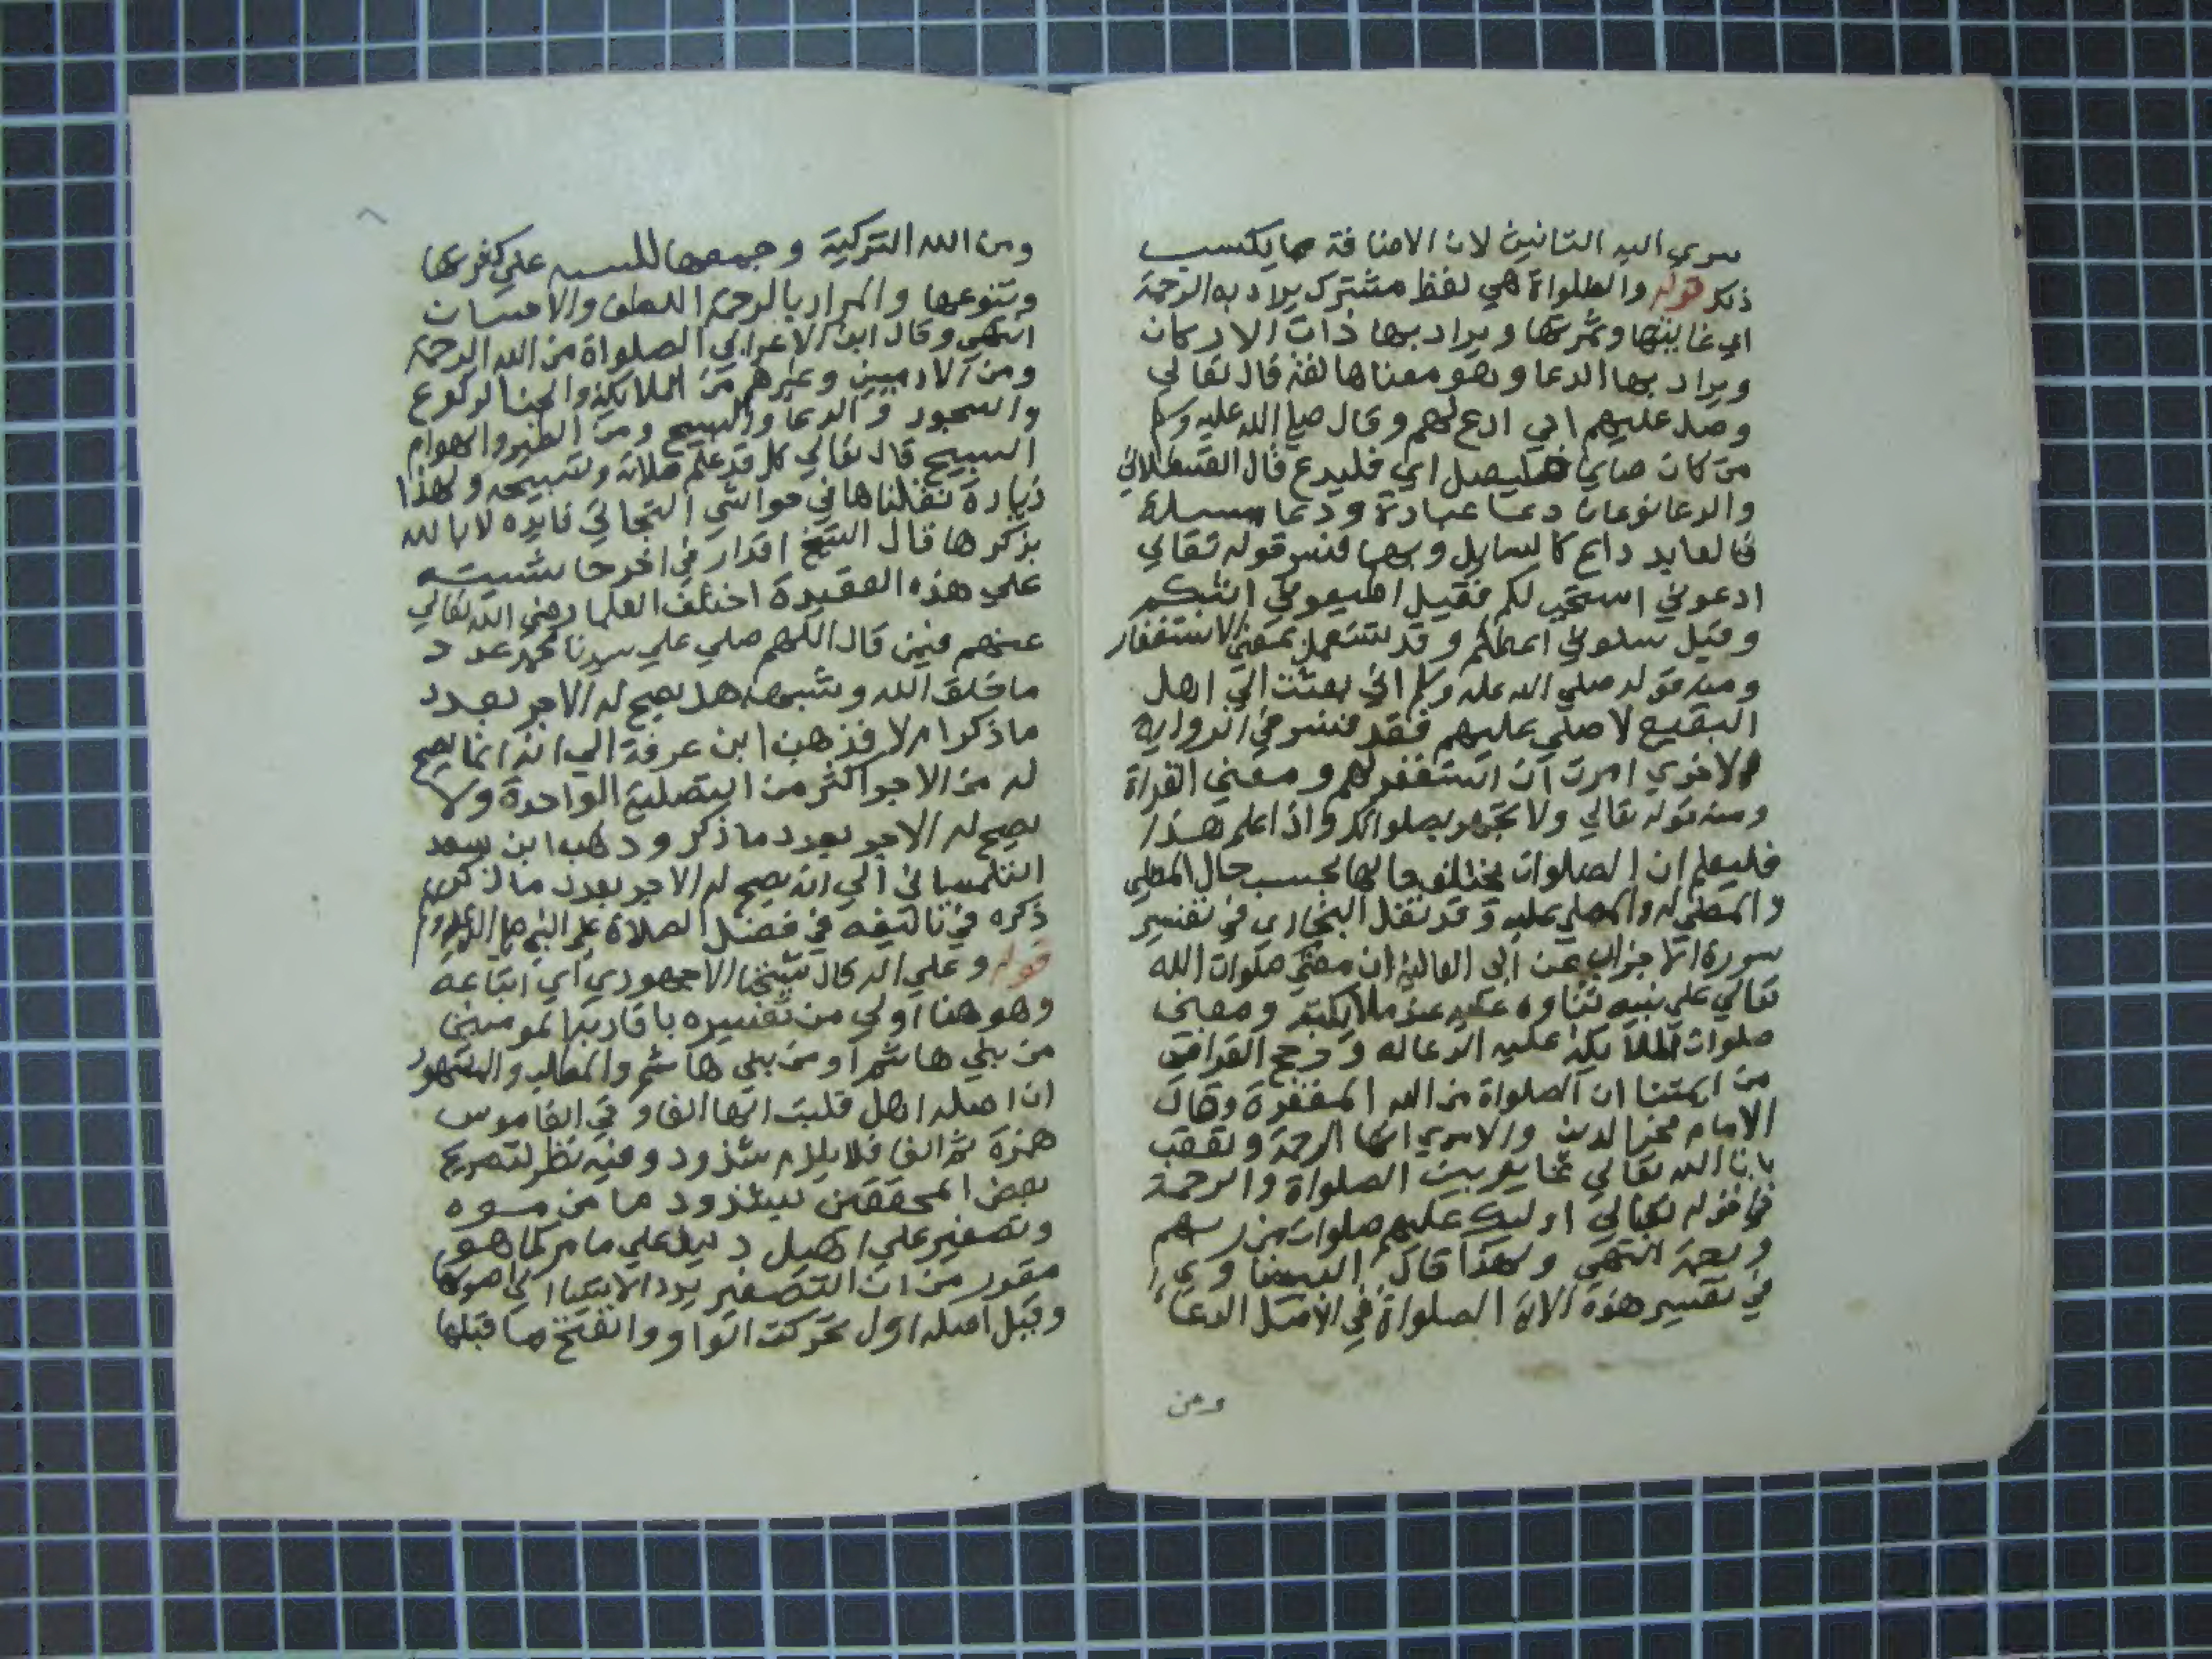 سري اليه التانيث لان الاضافة مما يكتسب
ذلك قوله والصلواة هي لفظ مشترك يراد به الرحمة
اي غايتها وثمرتها ويراد بها ذات الاركان
ويراد بها الدعا وهو معناها لغة قال تعالي
وصل عليهم اي ادع لهم وقال صلي الله عليه وسلم
من كان صايما فليصل اي فليدع قال القسطلاني
والدعا نوعان دعا عبادة ودعا مسيلة
فالعابد داع كالسايل وبهما فسر قوله تعالي
ادعوني استجب لكم فقيل اطيعوني اثبكم
وقيل سلوني اعطكم وقد تستعمل بمعني الاستغفار
ومنه قوله صلي الله عليه وسلم اني بعثت الي اهل
البقيع لاصلي عليهم فقد فسر في الرواية
الاخري امرت ان استغفر لهم ومعني القراة
ومنه قوله تعالي ولا تجهر بصلواتك واذا علم هذا
فليعلم ان الصلوات يختلف حالها بحسب حال المصلي
والمصلي له والمصلي عليه وقد نقل البخاري في تفسير
سورة الاحزاب عن ابي العالية ان معني صلوات الله
تعالي علي نبيه ثناوه عليه عند ملايكته ومعني
صلوات الملايكة عليه الدعا له ورجح القرافي
من ايمتنا ان الصلواة من الله المغفرة وقال
الامام فخر الدين والامدي انها الرحمة وتعقب
بان الله تعالي غاير بين الصلواة والرحمة
في قوله تعالي اوليك عليهم صلوات من ربهم
ورحمة انتهي ولهذا قال البيضاوي
في تفسير هذه الاية الصلواة في الاصل الدعا
ومن
ومن الله التزكية وجمعها للتنبيه علي كثرتها
وتنوعها والمراد بالرحمة اللطف والاحسان
انتهي وقال ابن الاعرابي الصلواة من الله الرحمة
ومن الادميين وغيرهم من الملايكة والجن الركوع
والسجود والدعا والتسبيح ومن الطير والهوام
التسبيح قال تعالي كل قد علم صلاته وتسبيحه ولهذا
زيادة نقلناها في حواشي التجاني فايدة لا باس
بذكرها قال الشيخ اقدار في اخر حاشيته
علي هذه العقيدة اختلف العلما رضي الله تعالي
عنهم فيمن قال اللهم صلي علي سيدنا محمد عدد
ما خلق الله وشبهه هل يصح له الاجر بعدد
ما ذكر ام لا فذهب ابن عرفة الي انه انما يصح
له من الاجر اكثر من التصلية الواحدة ولا
يصح له الاجر بعدد ما ذكر وذهب ابن سعد
التلمساني الي انه يصح له الاجر بعدد ما ذكر
ذكره في تاليفه في فضل الصلاة علي النبي صلي الله عليه وسلم
قوله وعلي اله قال شيخنا الاجهوري اي اتباعه
وهو هنا اولي من تفسيره باقاربه المومنين
من بني هاشم او من بني هاشم والمطلب والمشهور
ان اصله اهل قلبت الها الفا وفي القاموس
همزة ثم الفا فلا يلزم شذوذ وفيه نظر لتصريح
بعض المحققين بشذوذ ما من
وتصغير علي اهيل دليل علي ما مر كما هو
مقرر من ان التصغير يرد الاشيا الي اصولها
وقيل اصله اول تحركت الواو وانفتح ما قبلها